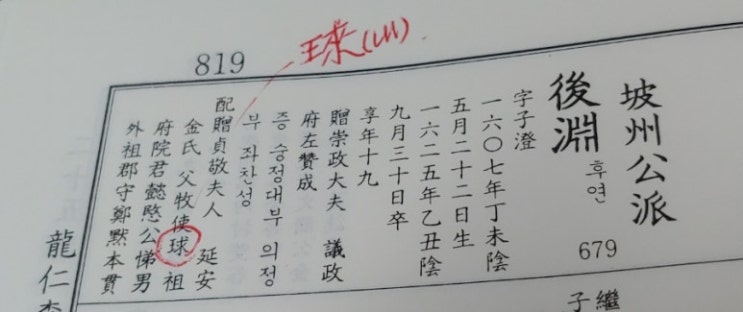 819
琜(래)
坡州公派
後淵 후연
679
字子澄
一六〇七年丁未陰
五月二十二日生
一六二五年乙丑陰
九月三十日卒
享年十九
贈崇政大夫 議政
府左贊成
증 숭정대부 의정
부 좌찬성
配贈貞敬夫人 延安
金氏 父牧使球 祖
府院君懿愍公悌男
外祖郡守鄭默本貫
龍仁
繼
子